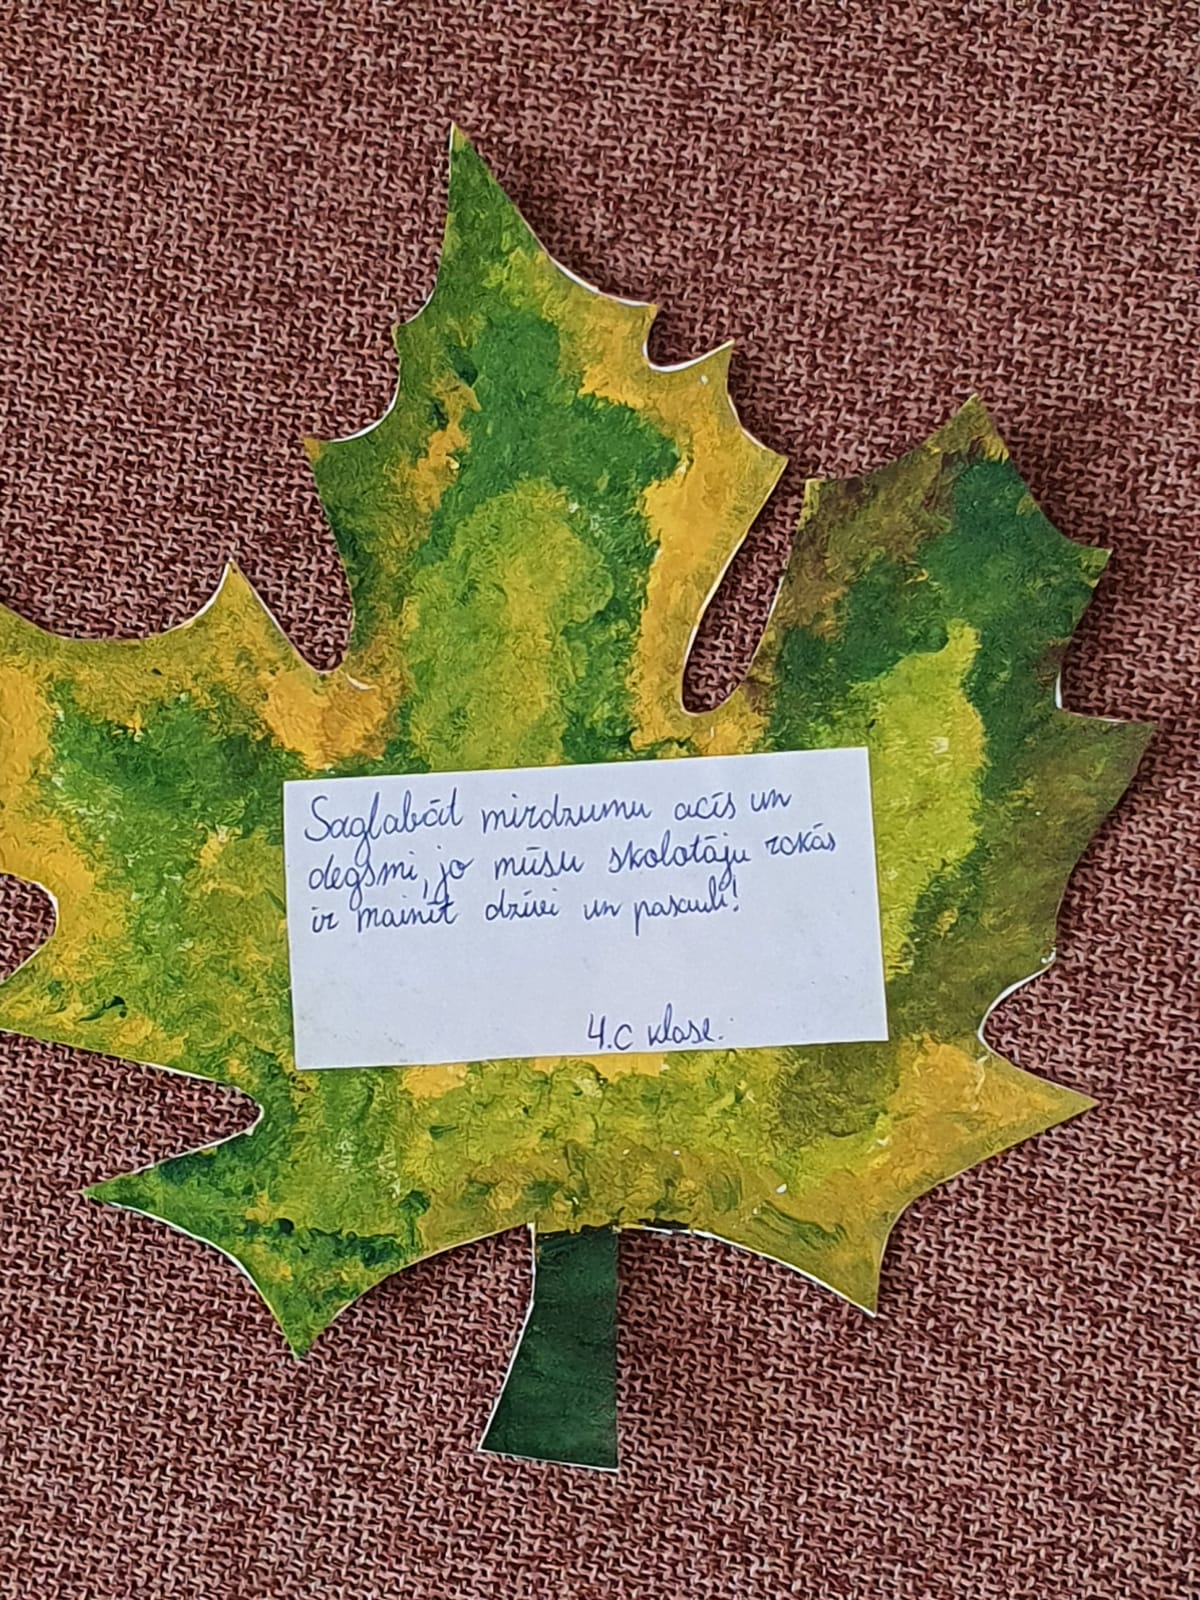 Saglabāt mirdzumu acīs un
degsmi, jo mūsu skolotāju rokās
ir mainīt dzīvi un pasauli!
4.c klase.